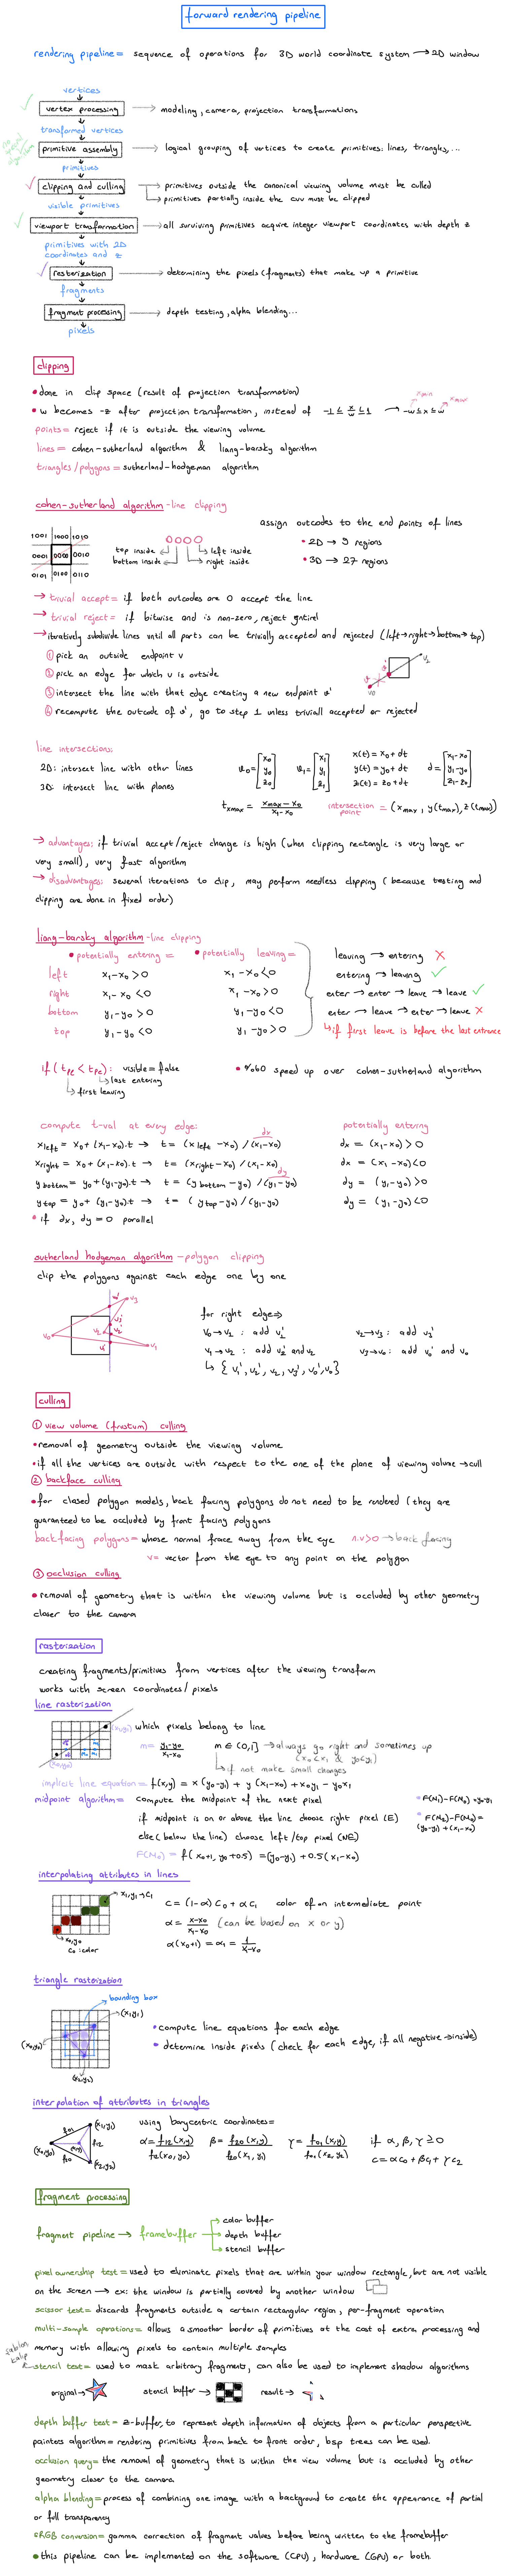 forward rendering pipeline
rendering pipeline = sequence of operations for 3D world coordinate system → 2D window
vertices
vertex processing → modeling, camera, projection transformations
transformed vertices
primitive assembly → logical grouping of vertices to create primitives: lines, triangles, ...
primitives
clipping and culling → primitives outside the canonical viewing volume must be culled
→ primitives partially inside the cvv must be clipped
visible primitives
viewport transformation → all surviving primitives acquire integer viewport coordinates with depth z
primitives with 2D
coordinates and z
rasterization → determining the pixels (fragments) that make up a primitive
fragments
fragment processing → depth testing, alpha blending...
pixels
clipping
• done in clip space (result of projection transformation)
• w becomes -z after projection transformation, instead of -1 ≤ x/w ≤ 1 → -w ≤ x ≤ w
xmin xmax
points = reject if it is outside the viewing volume
lines = cohen-sutherland algorithm & liang-barsky algorithm
triangles/polygons = sutherland-hodgeman algorithm
cohen-sutherland algorithm - line clipping
assign outcodes to the end points of lines
1001 1000 1010
0001 0000 0010
0101 0100 0110
0000
top inside left inside
bottom inside right inside
• 2D → 9 regions
• 3D → 27 regions
→ trivial accept = if both outcodes are 0 accept the line
→ trivial reject = if bitwise and is non-zero, reject entirel
→ iteratively subdivide lines until all parts can be trivially accepted and rejected (left→right→bottom→top)
① pick an outside endpoint v
② pick an edge for which v is outside
③ intersect the line with that edge creating a new endpoint v'
④ recompute the outcode of v', go to step 1 unless triviall accepted or rejected
v0 v' v2
line intersection:
2D: intersect line with other lines
3D: intersect line with planes
v0 = [x0 y0 z0] v1 = [x1 y1 z1] x(t) = x0 + dt y(t) = y0 + dt z(t) = z0 + dt d = [x1-x0 y1-y0 z1-z0]
t xmax = xmax - x0 / x1-x0 intersection point = (xmax, y(tmax), z(tmax))
→ advantages: if trivial accept/reject change is high (when clipping rectangle is very large or
very small), very fast algorithm
→ disadvantages: several iterations to clip, may perform needless clipping (because testing and
clipping are done in fixed order)
liang-barsky algorithm - line clipping
• potentially entering = • potentially leaving =
left x1-x0 > 0 x1-x0 < 0
right x1-x0 < 0 x1-x0 > 0
bottom y1-y0 > 0 y1-y0 < 0
top y1-y0 < 0 y1-y0 > 0
leaving → entering ✗
entering → leaving ✓
enter → enter → leave → leave ✓
enter → leave → enter → leave ✗
↳ if first leave is before the last entrance
if (tpl < tpe): visible = false
last entering
first leaving
• %60 speed up over cohen-sutherland algorithm
compute t-val at every edge: potentially entering
xleft = x0 + (x1-x0).t → t = (xleft - x0) / (x1-x0) dx dx = (x1-x0) > 0
xright = x0 + (x1-x0).t → t = (xright - x0) / (x1-x0) dx = (x1-x0) < 0
ybottom = y0 + (y1-y0).t → t = (ybottom - y0) / (y1-y0) dy dy = (y1-y0) > 0
ytop = y0 + (y1-y0).t → t = (ytop - y0) / (y1-y0) dy = (y1-y0) < 0
• if dx, dy = 0 parallel
sutherland hodgeman algorithm - polygon clipping
clip the polygons against each edge one by one
for right edge ⇒
v0 → v1 : add v1' v2 → v3 : add v3'
v1 → v2 : add v2' and v2 v3 → v0 : add v0' and v0
↳ { v1', v2', v2, v3', v0', v0 }
culling
① view volume (frustum) culling
• removal of geometry outside the viewing volume
• if all the vertices are outside with respect to the one of the plane of viewing volume → cull
② backface culling
• for closed polygon models, back facing polygons do not need to be rendered (they are
guaranteed to be occluded by front facing polygons
back facing polygons = whose normal frace away from the eye n.v > 0 → back facing
v = vector from the eye to any point on the polygon
③ occlusion culling
• removal of geometry that is within the viewing volume but is occluded by other geometry
closer to the camera
rasterization
creating fragments/primitives from vertices after the viewing transform
works with screen coordinates/pixels
line rasterization
(x1,y1)
(x0,y0)
which pixels belong to line
m = y1-y0 / x1-x0 m ∈ (0,1] → always go right and sometimes up
(x0 < x1 & y0 < y1)
↳ if not make small changes
implicit line equation = f(x,y) = x(y0-y1) + y(x1-x0) + x0y1 - y0x1
midpoint algorithm = compute the midpoint of the next pixel
if midpoint is on or above the line choose right pixel (E)
else (below the line) choose left/top pixel (NE)
F(M0) = f(x0+1, y0+0.5) = (y0-y1) + 0.5(x1-x0)
* F(M1)-F(M0) = y0-y1
* F(M2)-F(M0) =
(y0-y1) + (x1-x0)
interpolating attributes in lines
x1,y1 → C1
x0,y0
C0: color
C = (1-α) C0 + α C1 color of an intermediate point
α = x-x0 / x1-x0 (can be based on x or y)
α(x0+1) = α1 = 1 / x1-x0
triangle rasterization
bounding box
(x1,y1)
(x0,y0)
(x2,y2)
• compute line equations for each edge
• determine inside pixels (check for each edge, if all negative → inside)
interpolation of attributes in triangles
(x0,y0) (x1,y1) (x2,y2) (x,y) f01 f12 f20
using barycentric coordinates =
α = f12(x,y) / f12(x0,y0) β = f20(x,y) / f20(x1,y1) γ = f01(x,y) / f01(x2,y2) if α, β, γ ≥ 0
c = αc0 + βc1 + γc2
fragment processing
fragment pipeline → framebuffer → color buffer
→ depth buffer
→ stencil buffer
pixel ownership test = used to eliminate pixels that are within your window rectangle, but are not visible
on the screen → ex: the window is partially covered by another window
scissor test = discards fragments outside a certain rectangular region, per-fragment operation
multi-sample operations = allows a smoother border of primitives at the cost of extra processing and
memory with allowing pixels to contain multiple samples
şablon
kalıp
stencil test = used to mask arbitrary fragments, can also be used to implement shadow algorithms
original → stencil buffer → result →
depth buffer test = z-buffer, to represent depth information of objects from a particular perspective
painters algorithm = rendering primitives from back to front order, bsp trees can be used.
occlusion query = the removal of geometry that is within the view volume but is occluded by other
geometry closer to the camera.
alpha blending = process of combining one image with a background to create the appearance of partial
or full transparency
sRGB conversion = gamma correction of fragment values before being written to the framebuffer
• this pipeline can be implemented on the software (CPU), hardware (GPU) or both.